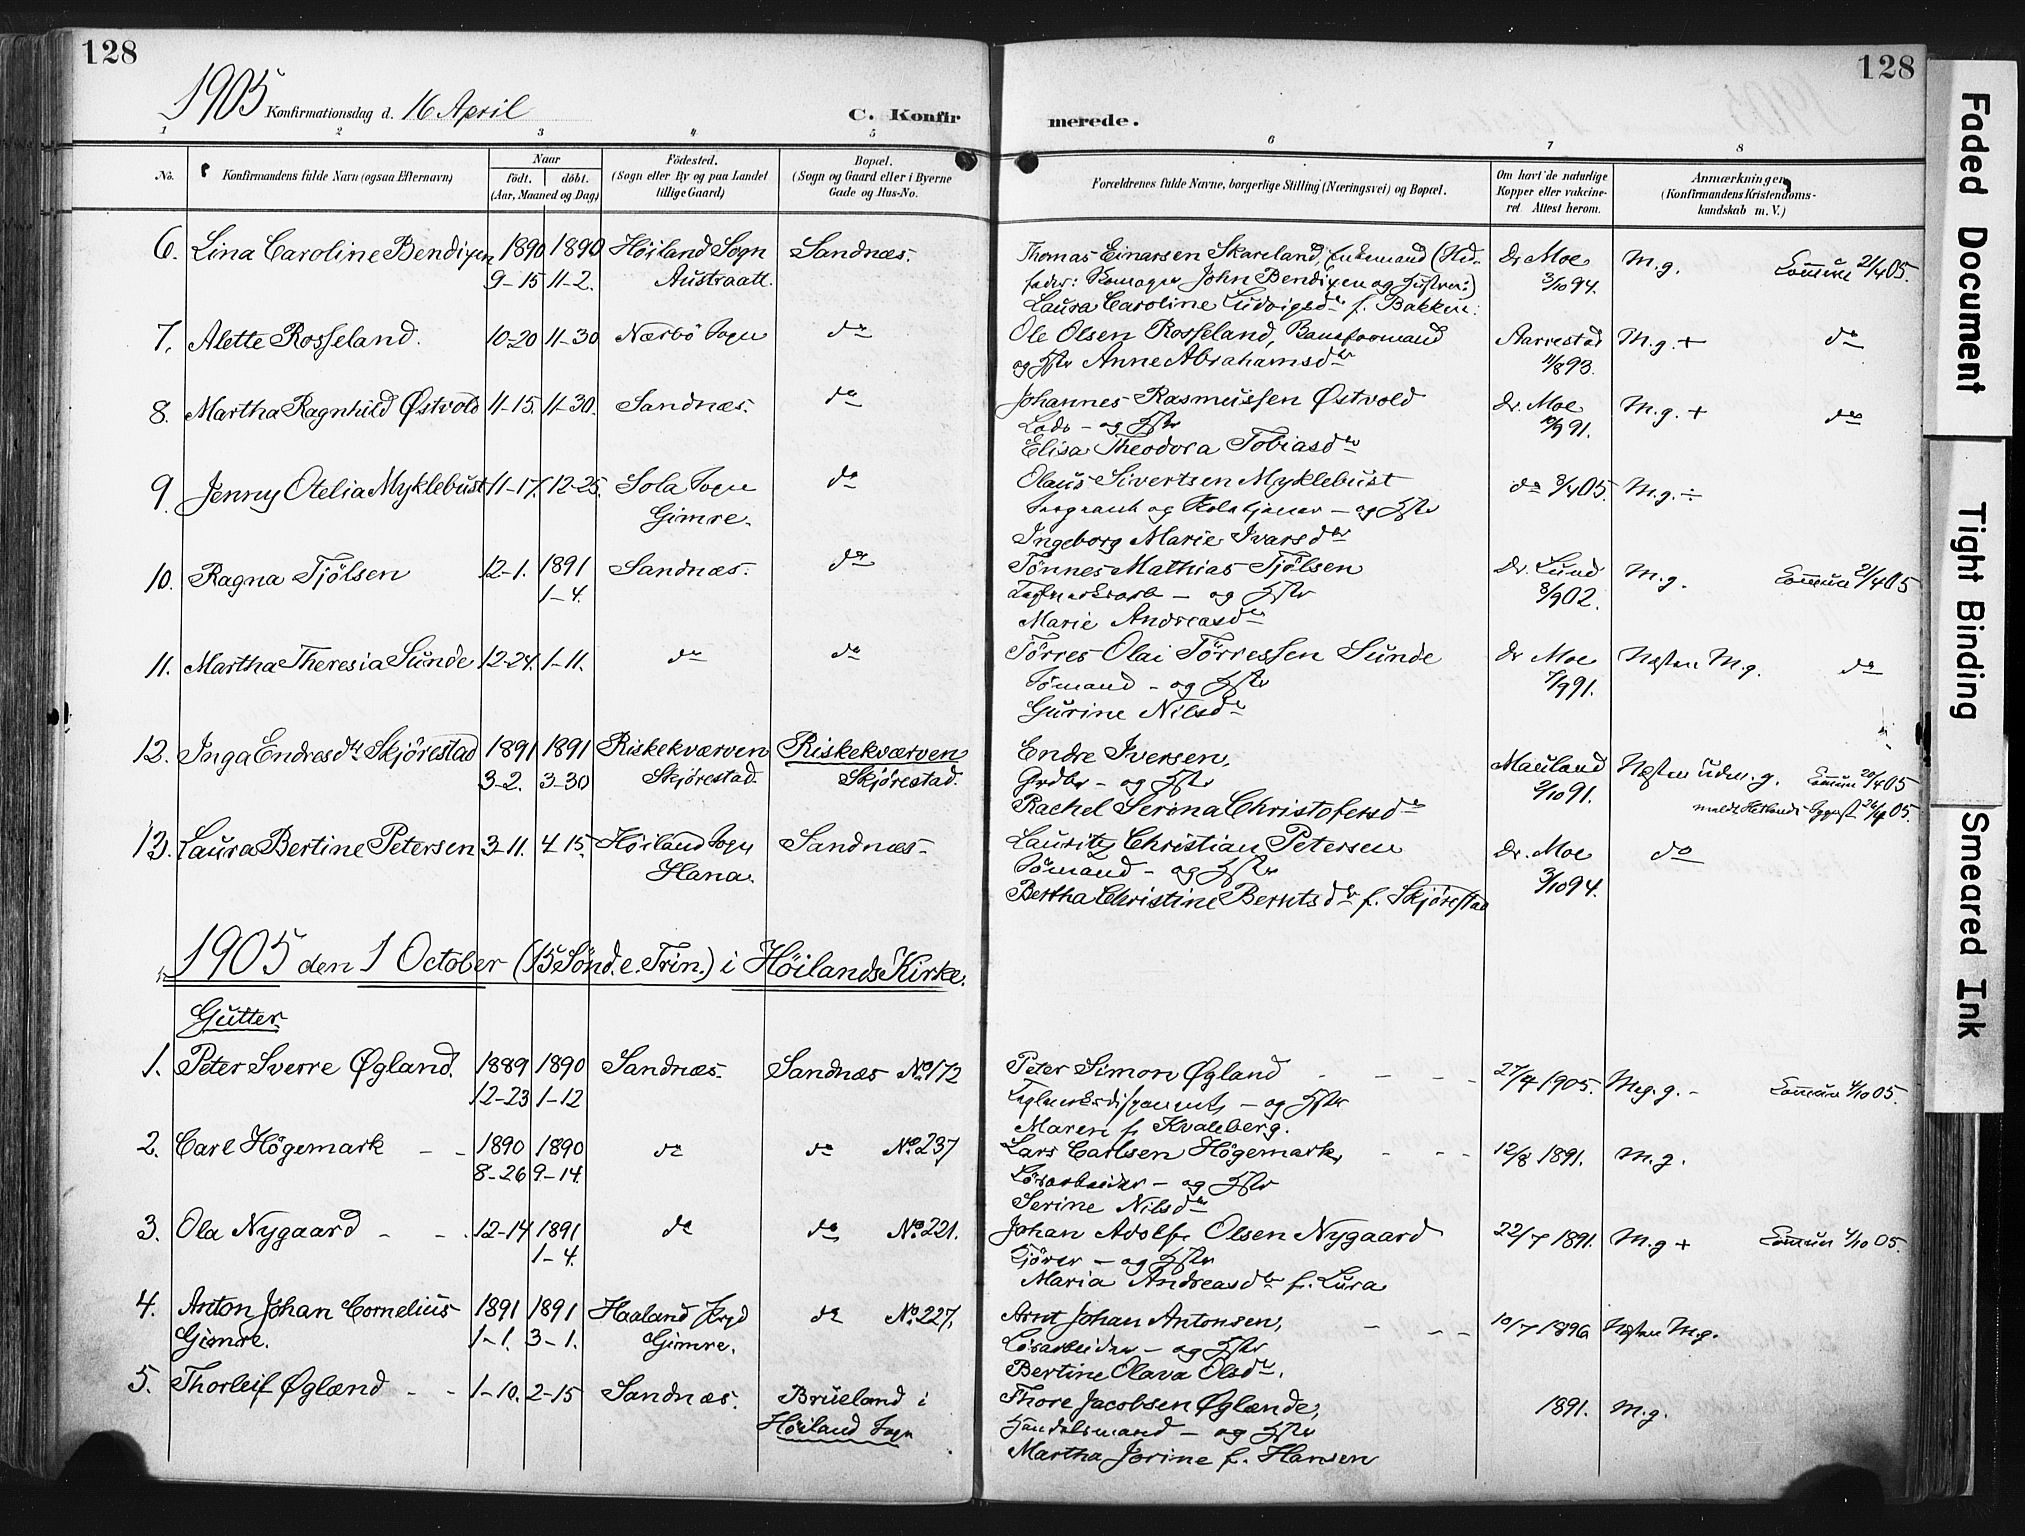 128
128
1905 Konfirmationsdag d. 16 April
C. Konfirmerede.
1 2 3 4 5 6 7 8
No.
Konfirmandens fulde Navn (ogsaa Efternavn)
Naar
født. døbt.
(Aar, Maaned og Dag)
Födested.
(Sogn eller By og paa Landet
tillige Gaard)
Bopæl.
(Sogn og Gaard eller i Byerne
Gade og Hus-No.
Forældrenes fulde Navne, borgerlige Stilling (Næringsvei) og Bopæl.
Om havt de naturlige
Kopper eller vakcine-
ret. Attest herom.
Anmærkninger
(Konfirmandens Kristendoms-
kundskab m. V.)
6. Lina Caroline Bendixen 1890 1890 Høiland Sogn Sandnæs. Thomas Einarsen Skareland, Enkemand Dr Moe M.g. 21/4 05.
9-15 11-2. Austraatt. John Bendixen og Hustru:) 3/10 94.
Laura Caroline Ludvigsdr f. Bakken.
7. Alette Rosseland. 10-20 11-30 Nærbö Sogn do Ole Olsen Rosseland, Baneformand Aarrestad M.g. + do
og Hstr Anne Abrahamsdr 11/8 93.
8. Martha Ragnhild Østvold 11-15. 11-30. Sandnæs. do Johannes Rasmussen Østvold Dr. Moe M.g. + do
Lods - og Hstr 91.
Elisa Theodora Tobiasdr
9. Jenny Otelia Myklebust 11-17. 12-25. Sola Sogn do Olaus Sivertsen Myklebust do 3/4 05. M.g. ÷
Gimre. og Hstr
Ingeborg Marie Ivarsdr
10. Ragna Tjölsen 12-1. 1891 Sandnæs. do Tönnes Mathias Tjölsen Dr. Lund M.g. 21/4 05
1-4. - og Hstr 3/9 02.
Marie Andreasdr
11. Martha Theresia Sunde 12-24. 1-11. do do Törres Olai Törressen Sunde Dr Moe Næsten M.g. do
Sömand - og Hstr 7/9 91.
Gurine Nilsdr
12. Inga Endresdtr Skjørestad 1891 1891 Riskekværven Riskekværven Endre Iversen, Mauland Næsten udm. g. 20/4 05
3-2. 3-30 Skjørestad. Skjørestad. Grdbr - og Hstr 9/10 91. 05.
Rachel Serina Christofersdr
13. Laura Bertine Petersen 3-11. 4-15. Høiland Sogn Sandnæs. Lauritz Christian Petersen Dr. Moe do
Hana. Sömand - og Hstr 3/10 94.
Bertha Christine Berntsdr f. Skjørestad
1905 den 1 October (15 Sönd. e. Trin.) i Høilands Kirke.
Gutter.
1. Peter Sverre Øgland. 1889 1890 Sandnæs. Sandnæs No 172 Peter Simon Øgland 27/4 1905. M.g. - 4/10 05.
12-23 1-12 og Hstr
Maren f. Kvaleberg.
2. Carl Högemark 1890 1890 do do No. 237 Lars Carlsen Högemark, 12/8 1891. M.g.
8-26 9-14. Lösarbeider - og Hstr
Serine Nilsdr
3. Ola Nygaard 12-14 1891 do do No. 221. Johan Adolf Olsen Nygaard 22/7 1891. M.g + 4/10 05.
1-4. Kjörer - og Hstr
Maria Andreasdr f. Lura
4. Anton Johan Cornelius 1891 1891 Haaland do No. 227. Arnt Johan Antonsen, 10/7 1896 Næsten M.g.
Gimre. 1-1. 3-1. Gimre. Lösarbeider - og Hstr
Bertine Olava Olsdr.
5. Thorleif Øglænd 1-10. 2-15 Sandnæs. Brueland i Thore Jacobsen Øglænde, 1891. M.g.
Høiland Sogn Handelsmand - og Hstr
Martha Jorine f. Hansen
Faded Document
Tight Binding
Smeared Ink